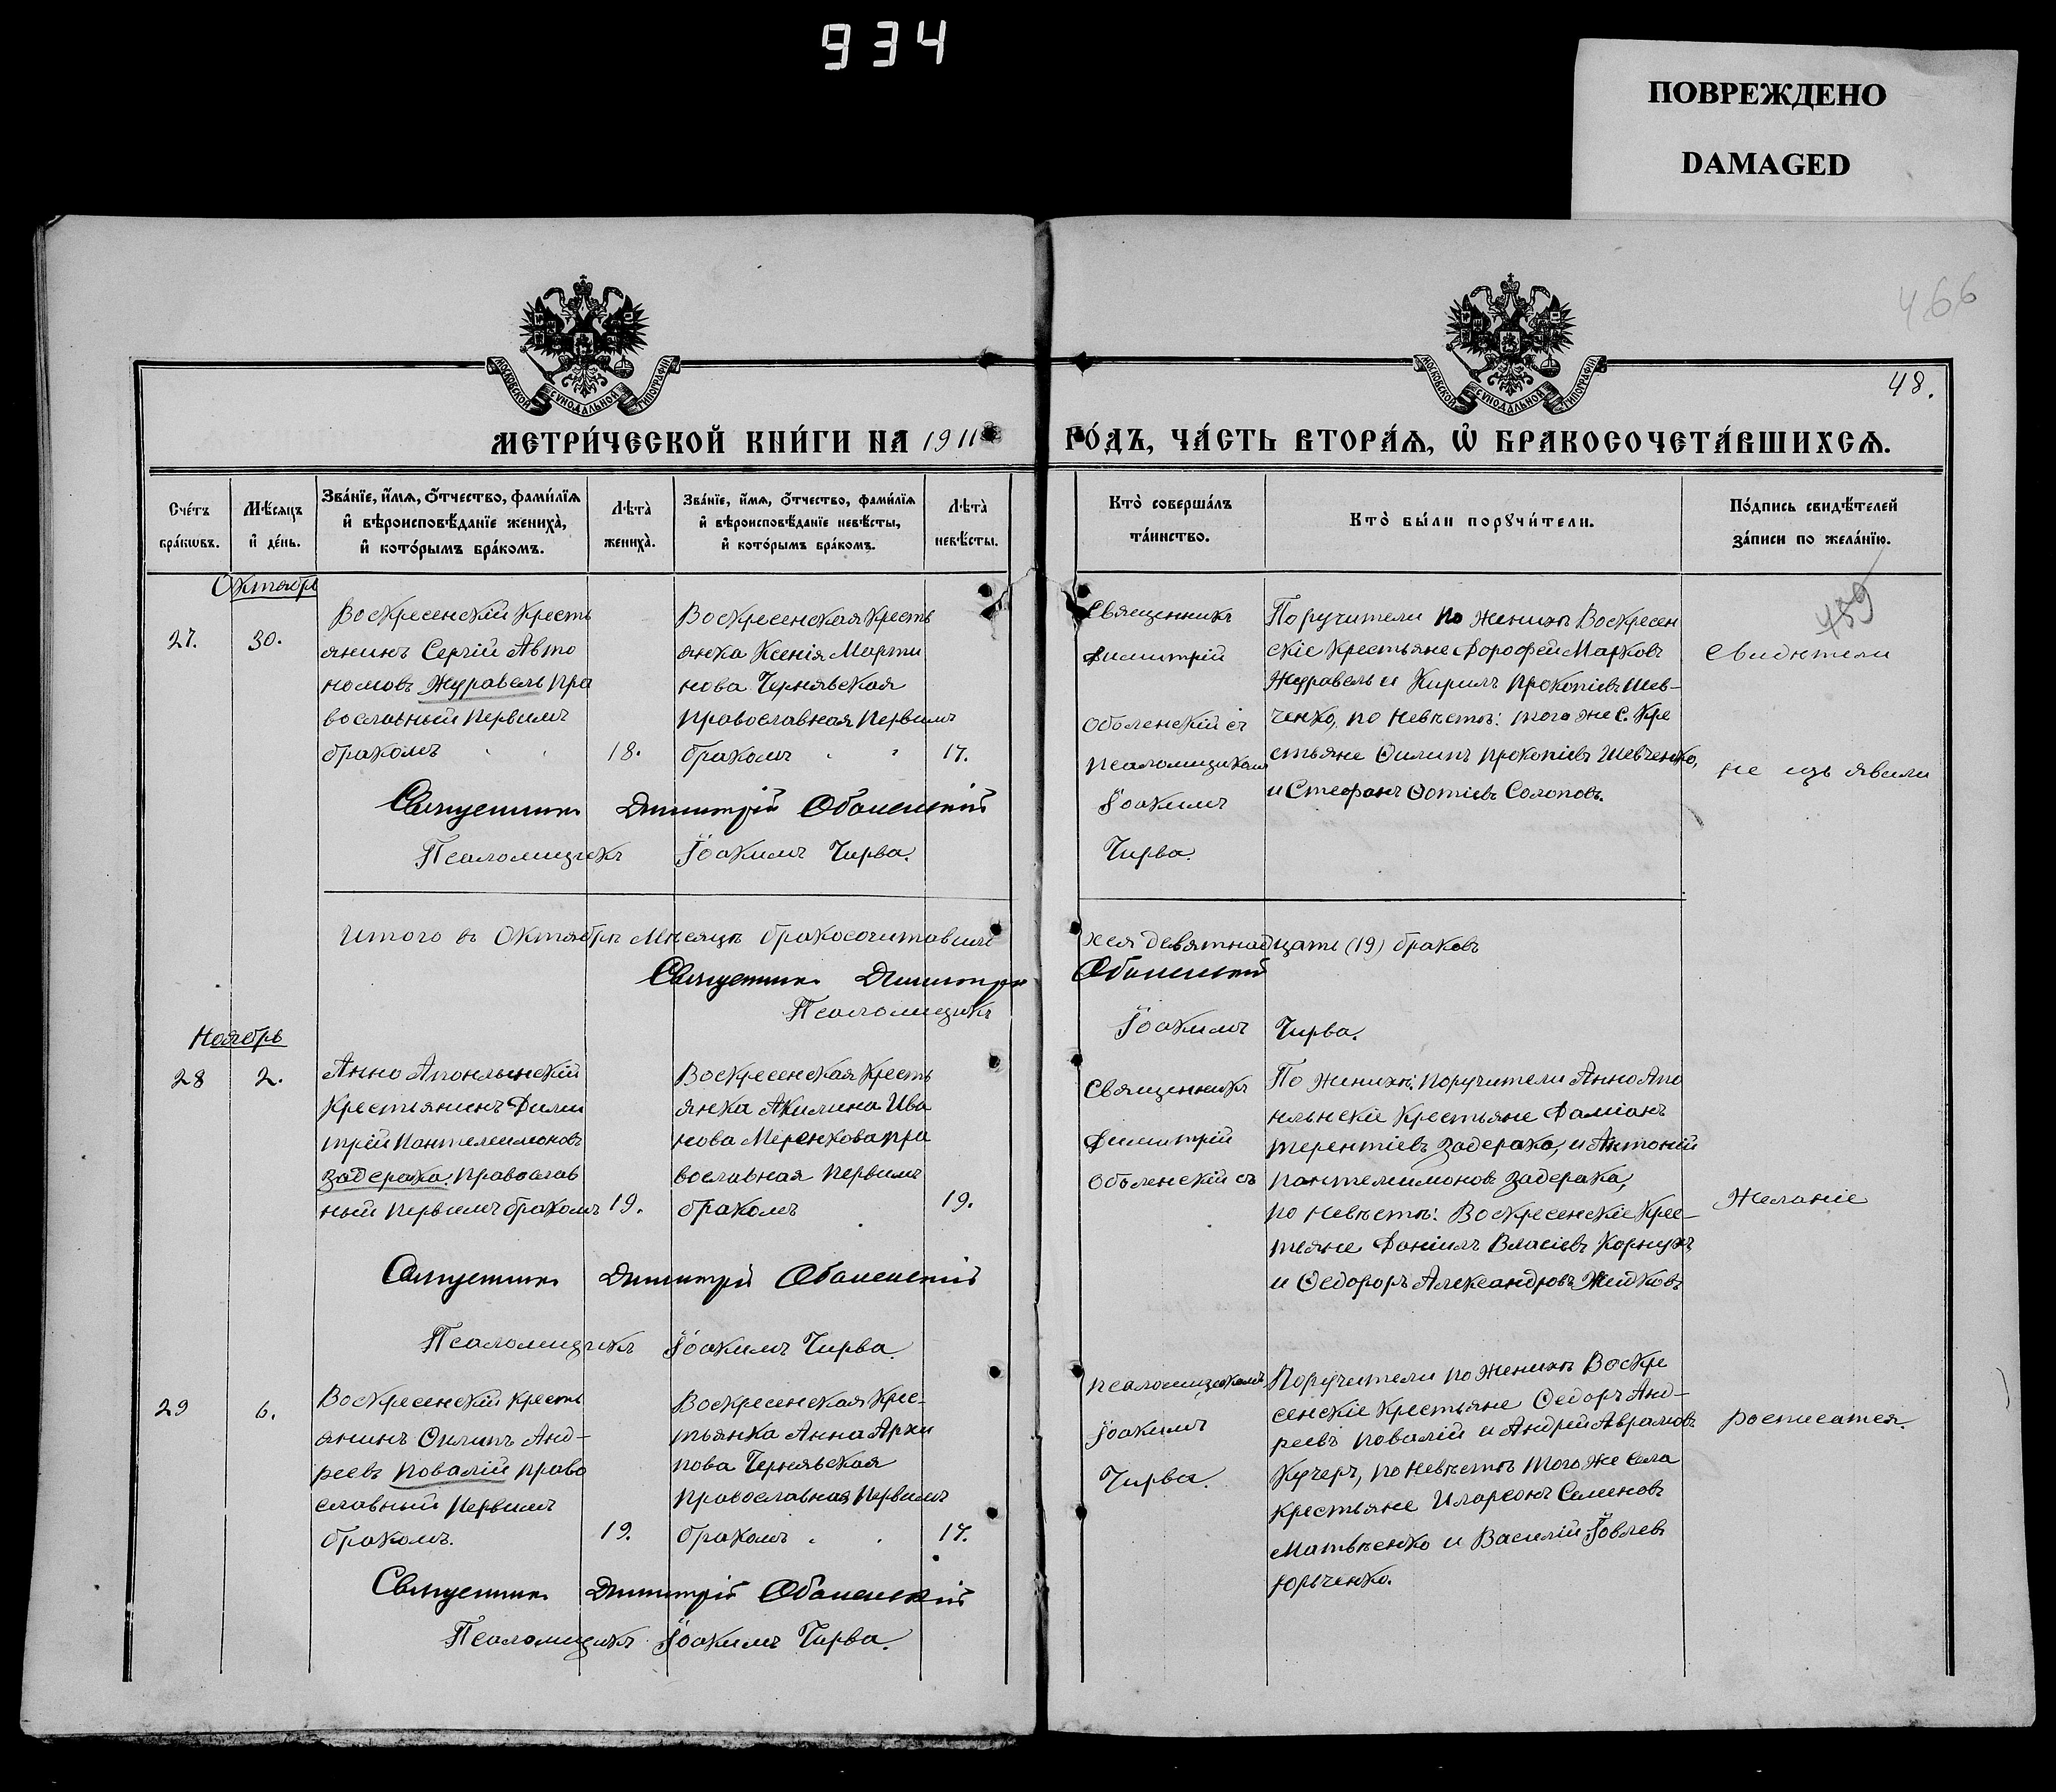 934
ПОВРЕЖДЕНО
DAMAGED
466
48.
МОСКОВСКОЙ СѴНОДАЛЬНОЙ ТИПОГРАФІИ
МОСКОВСКОЙ СѴНОДАЛЬНОЙ ТИПОГРАФІИ
МЕТРИ́ЧЕСКОЙ КНИ́ГИ НА 1911
ГО́ДЪ, ЧА́СТЬ ВТОРА́Ѧ, Ѡ҆ БРАКОСОЧЕТА́ВШИХСѦ.
Сче́тъ
бра́кѡвъ.
Мѣ́сѧцъ
и҆ де́нь.
Зва́нїе, и҆́мѧ, ѻ҆́тчество, фами́лїѧ
и҆ вѣроисповѣ́данїе жениха̀,
и҆ кото́рымъ бра́комъ.
Лѣта̀
жениха̀.
Зва́нїе, и҆́мѧ, ѻ҆́тчество, фами́лїѧ
и҆ вѣроисповѣ́данїе невѣ́сты,
и҆ кото́рымъ бра́комъ.
Лѣта̀
невѣ́сты.
Кто̀ соверша́лъ
та́инство.
Кто̀ бы́ли порꙋчи́тели.
По́дпись свидѣ́телей
за́писи по жела́нїю.
Октябрь
27.
30.
Воскресенскій Кресть
янинъ Сергій Авто
номовъ Журавель пра
вославный первымъ
бракомъ
18.
Воскресенская Кресть
янка Ксенія Марти
нова Чернявская
православная первымъ
бракомъ
17.
Священникъ
Димитрій
Оболенскій съ
псаломщикомъ
Іоакимъ
Чирва.
Поручители по женихѣ Воскресен
скіе Крестьяне Дорофей Марковъ
Журавель и Кирилъ Прокопіевъ Шев-
ченко, по невѣстѣ: того же с. Кре
стьяне Филипъ Прокопіевъ Шевченко,
и Стефанъ Фотіевъ Солоповъ.
459
Свидѣтели
не изъявили
Священникъ Димитрій Оболенскій
Псаломщикъ Іоакимъ Чирва.
Итого въ Октябрѣ Мѣсяцѣ бракосочитавши
хся девятнадцать (19) браковъ
Священникъ Димитрій
Оболенскій
Псаломщикъ
Іоакимъ Чирва.
Ноябрь
28
2.
Анно Апонльинскій
Крестьянинъ Дими
трій Пантелеимоновъ
Задерака. Православ
ный первымъ бракомъ
19.
Воскресенская Кресть
янка Акилина Ива
нова Меренкова пра
вославная первымъ
бракомъ
19.
Священникъ
Димитрій
Оболенскій съ
По женихѣ: поручители Анно Апо
нльинскіе Крестьяне Даміанъ
Терентіевъ Задерака, и Антоній
Пантелимоновъ Задерака,
по невѣстѣ: Воскресенскіе Крес-
тьяне Даніилъ Власіевъ
и Федоръ Александровъ Жидковъ
Желаніе
Священникъ Димитрій Оболенскій
Псаломщикъ Іоакимъ Чирва.
29
6.
Воскресенскій кресть
янинъ Филипъ Анд-
реевъ Повалій право
славный первымъ
бракомъ.
19.
Воскресенская Крес-
тьянка Анна Архи
пова Чернявская
православная первымъ
бракомъ
17.
псаломщикомъ
Іоакимъ
Чирва.
Поручители по женихѣ Воскре
сенскіе Крестьяне Федоръ Анд-
реевъ Повалій и Андрій Аврамовъ
Кучеръ, по невѣстѣ того же села
крестьяне Иларіонъ Семеновъ
Матвѣенко и Василій Іовлевъ
Юрьченко.
росписатся.
Священникъ Димитрій Оболенскій
Псаломщикъ Іоакимъ Чирва.